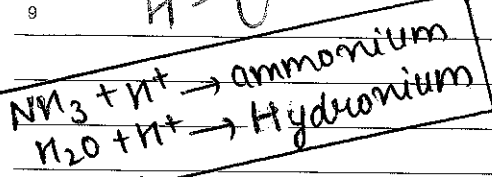 9
NH3 + H+ → ammonium
H2O + H+ → Hydronium